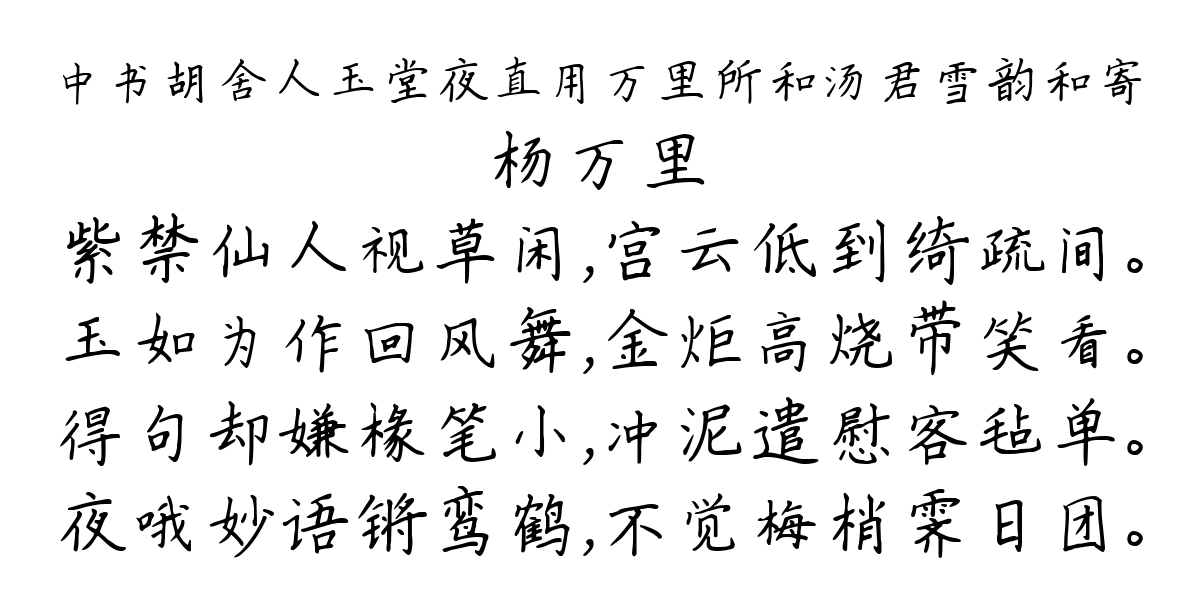 中书胡舍人玉堂夜直用万里所和汤君雪韵和寄
杨万里
紫禁仙人视草闲,宫云低到绮疏间。
玉如为作回风舞,金炬高烧带笑看。
得句却嫌椽笔小,冲泥遣慰客毡单。
夜哦妙语锵鸾鹤,不觉梅梢霁日团。